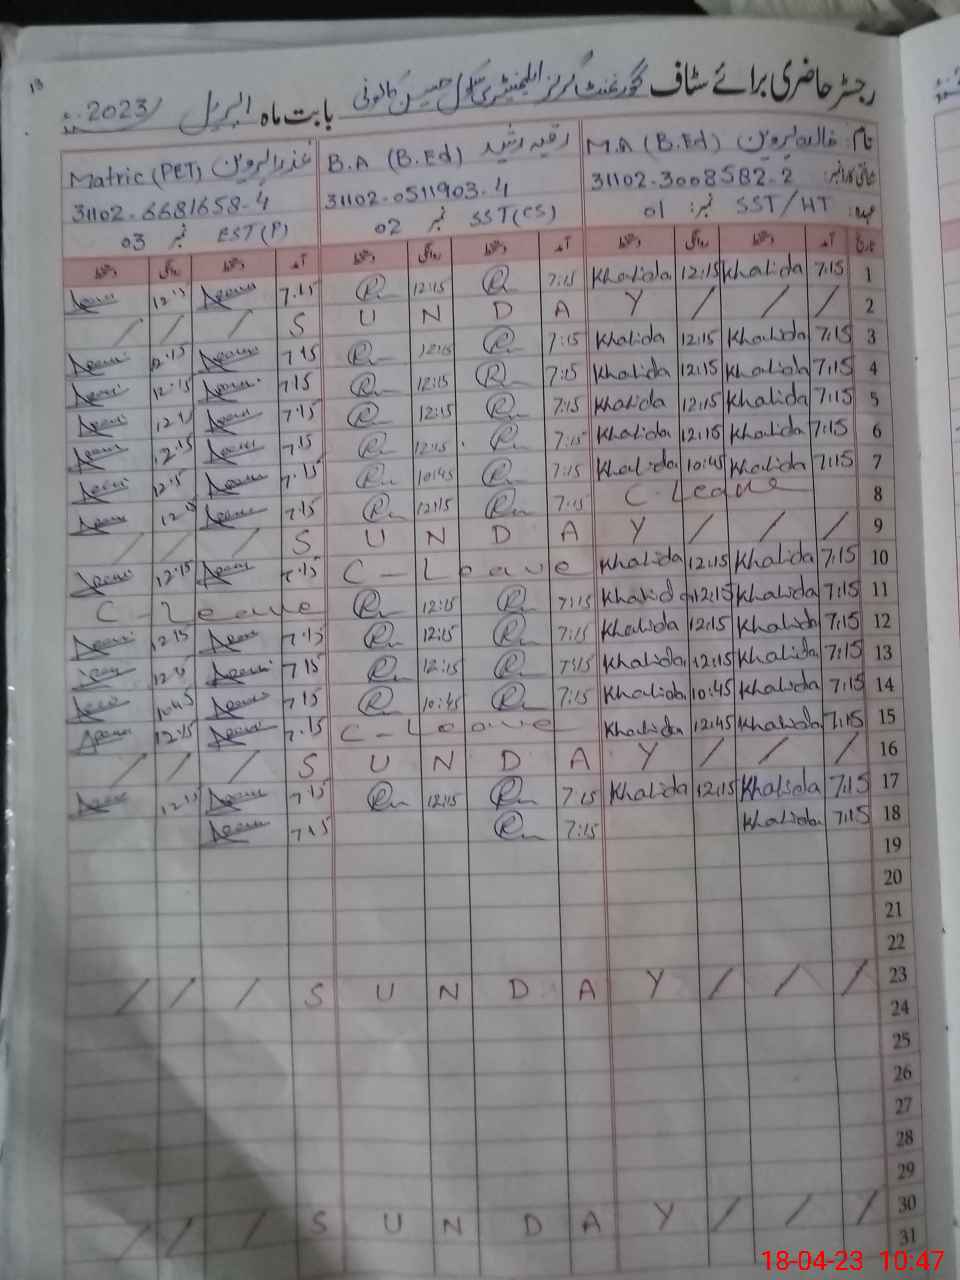 13
رجسٹر حاضری برائے سٹاف گورنمنٹ گرلز ایلیمنٹری سکول حسین کانونی بابت ماہ اپریل 2023ء
نام: خالدہ پروین M.A (B.Ed) رقیہ رشید B.A (B.Ed) عذرا پروین Matric (PET)
31102-3008582-2 31102-0511903-4 31102-6681658-4
عہدہ: SST/HT نمبر: 01 SST(CS) نمبر 02 EST(P) نمبر 03
تاریخ آمد دستخط روانگی دستخط آمد دستخط روانگی دستخط آمد دستخط روانگی دستخط
1 7:15 Khalida 12:15 Khalida 7:15 12:15 7.15 12:15
2 / / / Y A D N U S / / /
3 7:15 Khalida 12:15 Khalida 7:15 12:15 7:15 12:15
4 7:15 Khalida 12:15 Khalida 7:15 12:15 7:15 12:15
5 7:15 Khalida 12:15 Khalida 7:15 12:15 7:15
6 7:15 Khalida 12:15 Khalida 7:15 12:15 7:15 12:15
7 7:15 Khalida 10:45 Khalida 7:15 10:45 7.15 12:15
8 C-Leave 7:15 12:15 7:15
9 / / / Y A D N U S / / /
10 7:15 Khalida 12:15 Khalida C-Leave 7:15 12:15
11 7:15 Khalida 12:15 Khalida 7:15 12:15 C-Leave
12 7:15 Khalida 12:15 Khalida 7:15 12:15 7:15 12:15
13 7:15 Khalida 12:15 Khalida 7:15 12:15 7:15
14 7:15 Khalida 10:45 Khalida 7:15 10:45 7:15 10:45
15 7:15 Khalida 12:45 Khalida C-Leave 7.15 12:15
16 / / / Y A D N U S / / /
17 7:15 Khalida 12:15 Khalida 7:15 12:15 7:15 12:15
18 7:15 Khalida 7:15 7:15
19
20
21
22
23 / / / Y A D N U S / / /
24
25
26
27
28
29
30 / / / Y A D N U S / / /
31
18-04-23 10:47